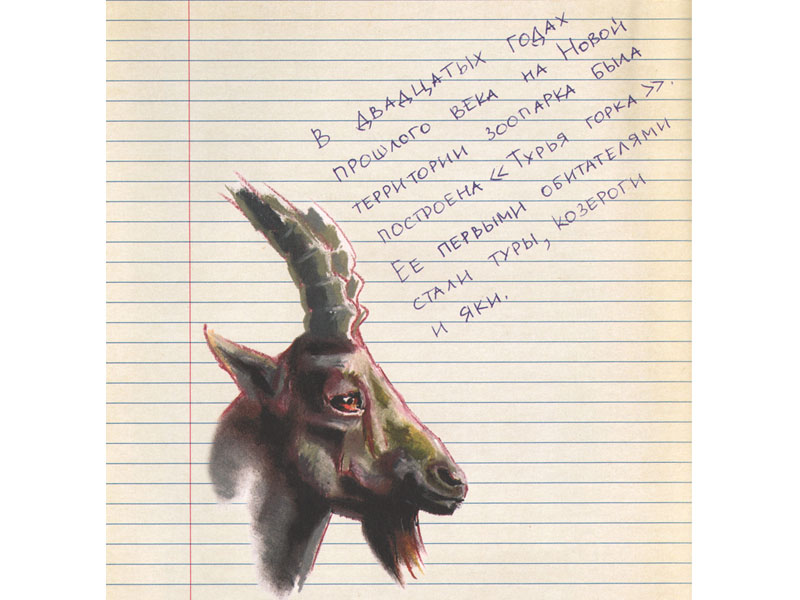 В двадцатых годах
прошлого века на Новой
территории зоопарка была
построена «Турья горка».
Ее первыми обитателями
стали туры, козероги
и яки.